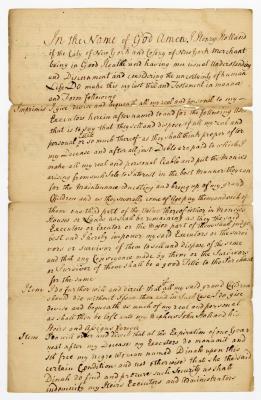 In the Name of God Amen, I Henry Holland
of the City of New York and Colony of New York Merchant
being in Good Health and having my usual Understanding
and Discernment and considering the uncertainty of human
Life DO make this my last Will and Testament in manner
and Form following
Imprimis I give devise and bequeath all my real and personal to my
Executors herein after named to and for the following Use
that is to say that they sell and dispose of all my real and
personal or so much thereof as they shall think proper after
my Decease and after all just Debts are paid to which I
make all my real and personal liable and put the monies
arising from such Sale to Interest in the best Manner they can
for the Maintenance educating and bringing up of my grand
Children and as they severally come of Age pay them each of
them one third part of the Value thereof either in Monies
Houses or Lands as shall be remaining as they the my
Executors or Executor or the Major part of them shall judge
best and I hereby impower my said Executors or the Survi
vors or Survivor of them to sell and dispose of the same
and that any Conveyance made by them or the Survivors
or Survivor of them shall be a good Title to the Purchaser
for the same
Item I do further will and direct that all my said grand Children
should die without Issue then and in such Case I do give
devise and bequeath so much of my real and personal
as shall then be left unto my Nephew John Holland his
Heirs and Assigns forever
Item I do will order and direct that at the Expiration of one Year
next after my Decease my Executors do manumit and
set free my negro Woman named Dinah upon this
certain Condition and not otherwise that she the said
Dinah do find and procure such Security as shall
indemnify my Heirs Executors and Administrators